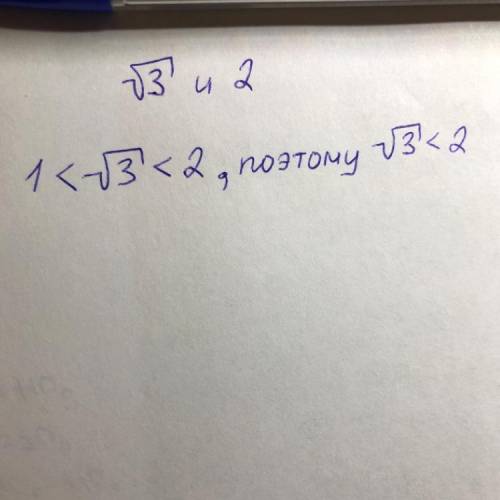 √3 и 2
1 < √3 < 2, поэтому √3 < 2